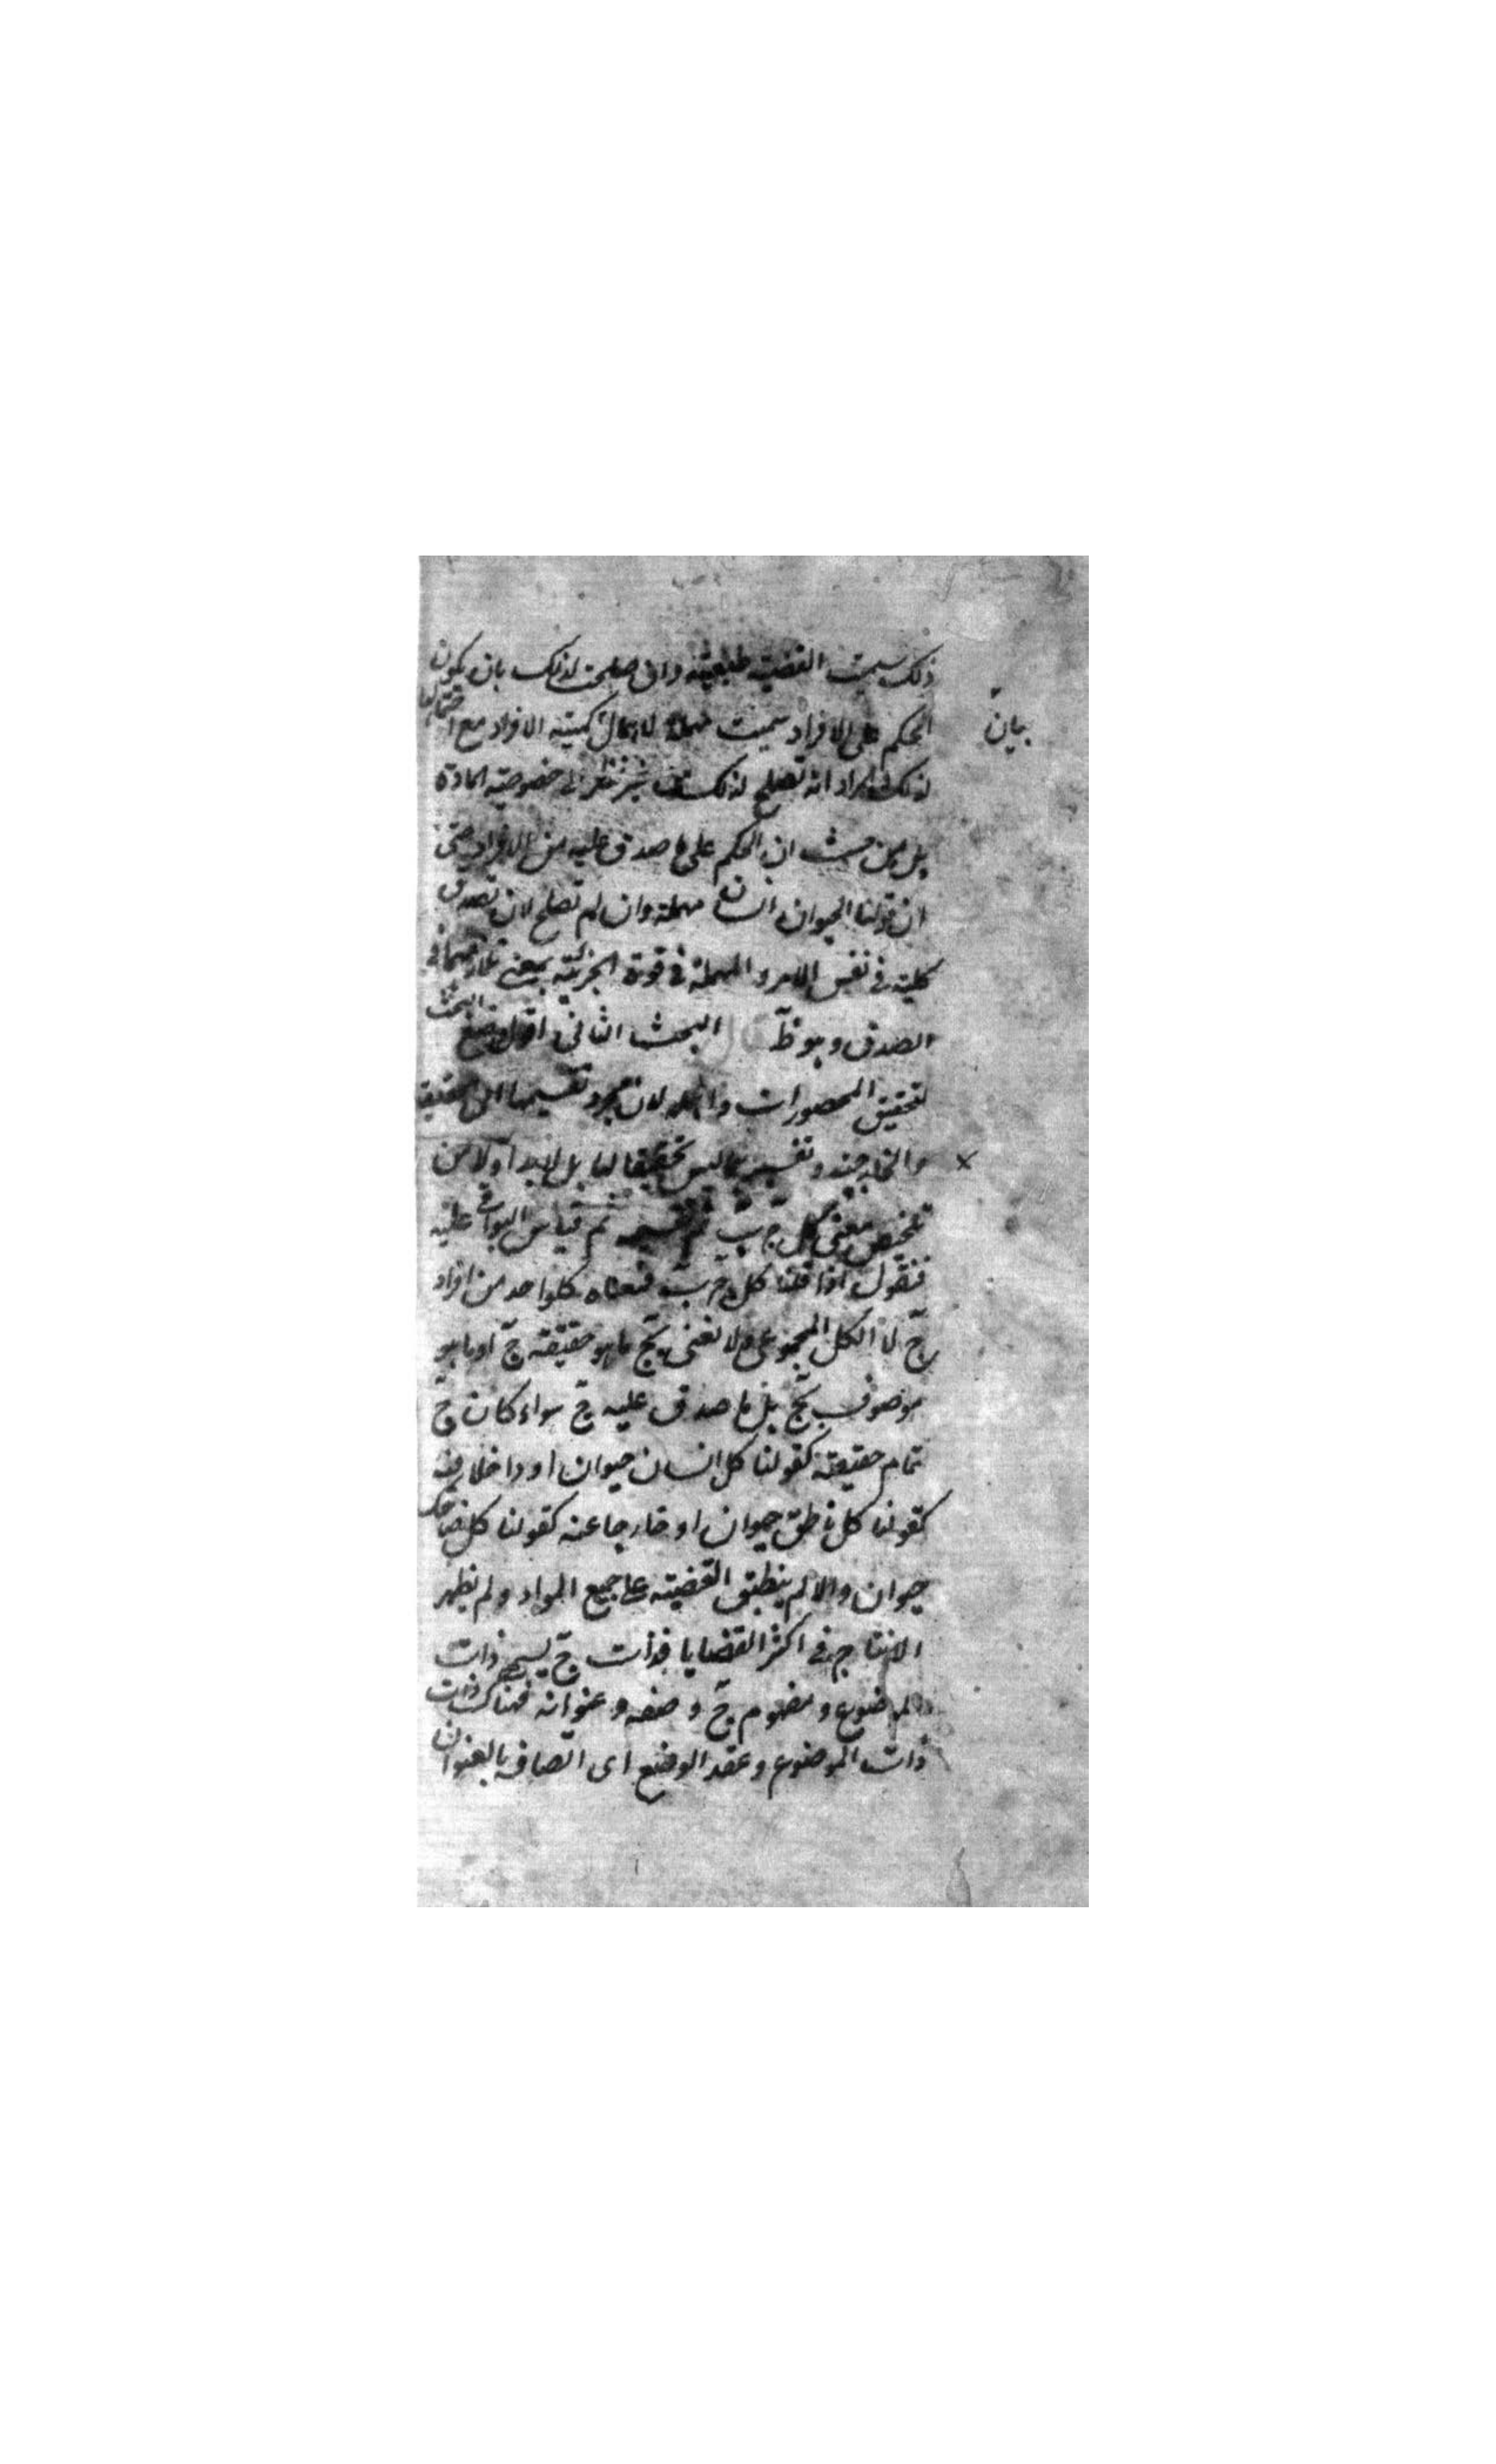 ذلك سميت القضية طبيعية وان صلحت لذلك بان يكون
الحكم على الافراد سميت مهملة لاهمال كمية الافراد مع احتمالها
بيان
لذلك والمراد انه تصلح لذلك من غير نظر الى خصوصية المادة
بل من حيث ان الحكم على ما صدق عليه من الافراد حتى
ان قولنا الحيوان انسان مهملة وان لم تصلح لان تصدق
كلية فى نفس الامر والمهملة فى قوة الجزئية بمعنى تلازمهما فى
الصدق وهو ظ قال البحث الثانى اقول وضع البحث
لتحقيق المحصورات لان مجرد تقسيمها الى الحقيقية
والخارجية وتفسير ليس تحقيقا لها بل لابد اولا من
تلخيص معنى كل ج ب ثم تقسيمه ثم قياس البواقى عليه
فنقول اذا قلنا كل ج ب فمعناه كلواحد من افراد
ج لا الكل المجموعى ولا نعنى بج ما هو حقيقته ج او ما هو
موصوف بج بل ما صدق عليه ج سواء كان ج
تمام حقيقته كقولنا كل انسان حيوان او داخلا فيه
كقولنا كل ناطق حيوان او خارجا عنه كقولنا كل ضاحك
حيوان والا لم ينطبق القضية على جميع المواد ولم يظهر
الانتاج فى اكثر القضايا فذات ج يسمى ذات
الموضوع ومفهوم ج وصفه وعنوانه فهناك ذات
ذات الموضوع وعقد الوضع اى اتصافه بالعنوان